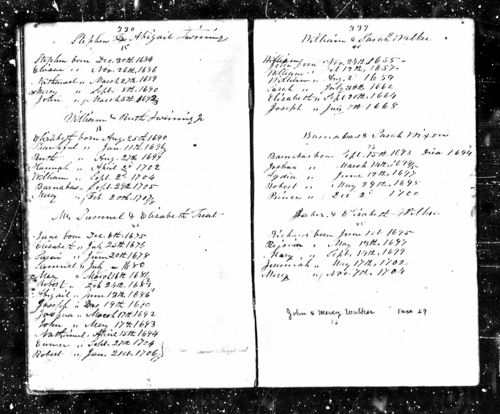 330
Stephen & Abigail Twining
Stephen born Dec. 30th 1684
Eleanor " Nov. 26th 1686
Nathaniel " March 27th 1689
Mercy " Sept. 8th 1690
John " March 5th
William & Ruth Twining Jr
Elizabeth born Aug. 25th 1690
Thankful " Jan. 11th 1696
Ruth " Aug. 27th 1699
Hannah " April 2d 1702
William " Sept. 2d 1704
Barnabas " Sept. 29th 1705
Mercy " Feb. 20th
Mr Samuel & Elizabeth Treat
Jane born Dec. 6th 1675
Elisabeth " July 24th 1676
Sarah " June 20th 1678
Samuel " July 1680
Mary " March 16th 1681
Robert " Feb 24th 1683
Abigail " June 13th 1686
Joseph " Nov. 19th 1690
Joshua " March 17th 1692
John " May 17th 1693
Nathaniel " April 15th 1694
Eunice " Sept. 27th 1704
Robert " Jan. 21st 1706
337
William & Sarah Walker
John born Nov. 24th 1655
William " 12th 1657
William " Aug. 2 1659
Sarah " July 30th 1662
Elizabeth " Sept. 28th 1664
Joseph " July 7th 1668
Barnabas & Sarah Wixon
Barnabas born Sept. 15th 1693 Died 1694
Joshua " March 14th
Lydia " June 12th 1697
Robert " May 29th 1698
Prince " Dec 2d 1700
Jabez & Elizabeth Walker
Richard born June 1st 1695
Rejoice " May 13th 1697
Mary " Sept. 14th 1699
Jeremiah " May 17th 1702
Mercy " Nov. 7th 1704
John & Mercy Walker Page 29